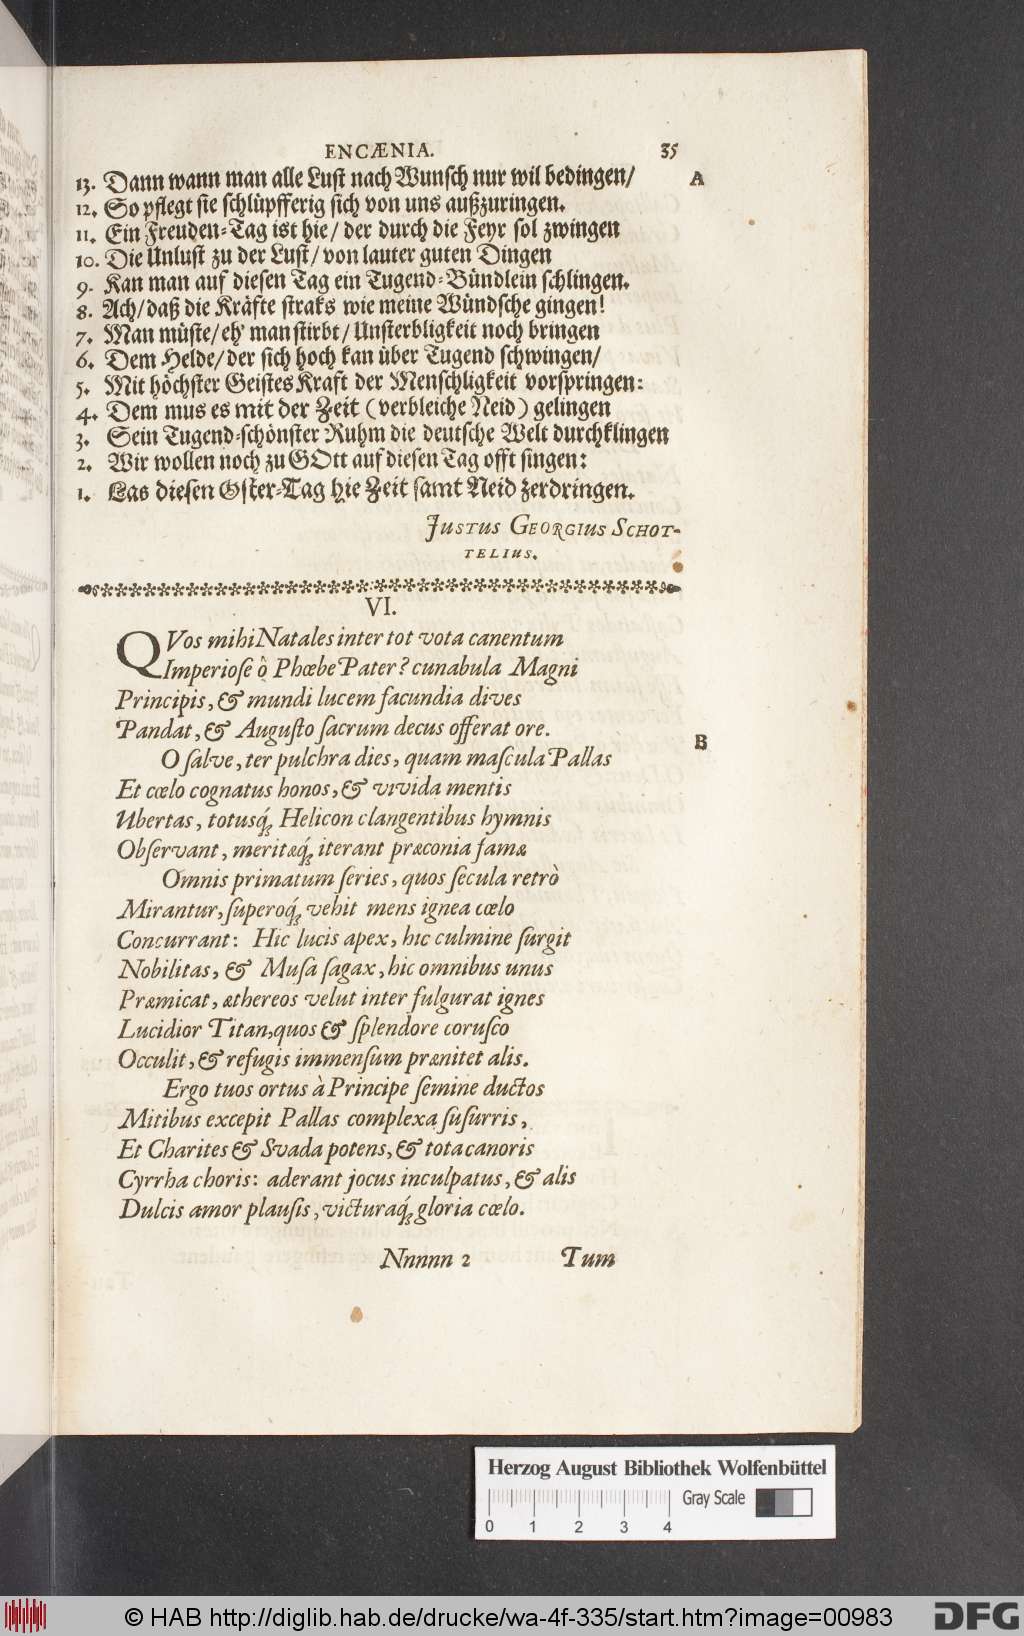 ENCÆNIA. 35
A
13. Dann wann man alle Lust nach Wunsch nur wil bedingen/
12. So pflegt sie schlüpfferig sich von uns außzuringen.
11. Ein Freuden-Tag ist hie/ der durch die Feyr sol zwingen
10. Die Unlust zu der Lust/ von lauter guten Dingen
9. Kan man auf diesen Tag ein Tugend-Bündlein schlingen.
8. Ach/ daß die Kräfte straks wie meine Wündsche gingen!
7. Man müste/ eh' man stirbt/ Unsterbligkeit noch bringen
6. Dem Helde/ der sich hoch kan über Tugend schwingen/
5. Mit höchster Geistes Kraft der Menschligkeit vorspringen:
4. Dem mus es mit der Zeit (verbleiche Neid) gelingen
3. Sein Tugend-schönster Ruhm die deutsche Welt durchklingen
2. Wir wollen noch zu GOtt auf diesen Tag offt singen:
1. Las diesen Oster-Tag hie Zeit samt Neid zerdringen.
JUSTUS GEORGIUS SCHOT-
TELIUS.
VI.
QVos mihi Natales inter tot vota canentum
Imperiose ô Phœbe Pater? cunabula Magni
Principis, & mundi lucem facundia dives
Pandat, & Augusto sacrum decus offerat ore.
B
O salve, ter pulchra dies, quam mascula Pallas
Et cœlo cognatus honos, & vivida mentis
Ubertas, totusq́; Helicon clangentibus hymnis
Observant, meritæq́; iterant præconia famæ
Omnis primatum series, quos secula retrò
Mirantur, superoq́; vehit mens ignea cœlo
Concurrant: Hic lucis apex, hic culmine surgit
Nobilitas, & Musa sagax, hic omnibus unus
Præmicat, æthereos velut inter fulgurat ignes
Lucidior Titan, quos & splendore corusco
Occulit, & refugis immensum prænitet alis.
Ergo tuos ortus à Principe semine ductos
Mitibus excepit Pallas complexa susurris,
Et Charites & Svada potens, & tota canoris
Cyrrha choris: aderant jocus inculpatus, & alis
Dulcis amor plausis, victuraq́; gloria cœlo.
Nnnnn 2 Tum
Herzog August Bibliothek Wolfenbüttel
Gray Scale
0 1 2 3 4
© HAB http://diglib.hab.de/drucke/wa-4f-335/start.htm?image=00983
DFG